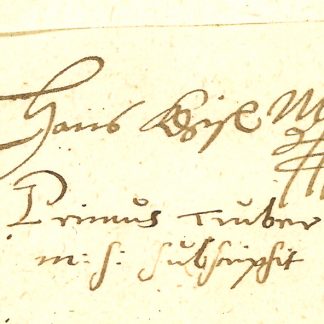 Hans Kisl M
Primus Truber
m: s: subscripsit